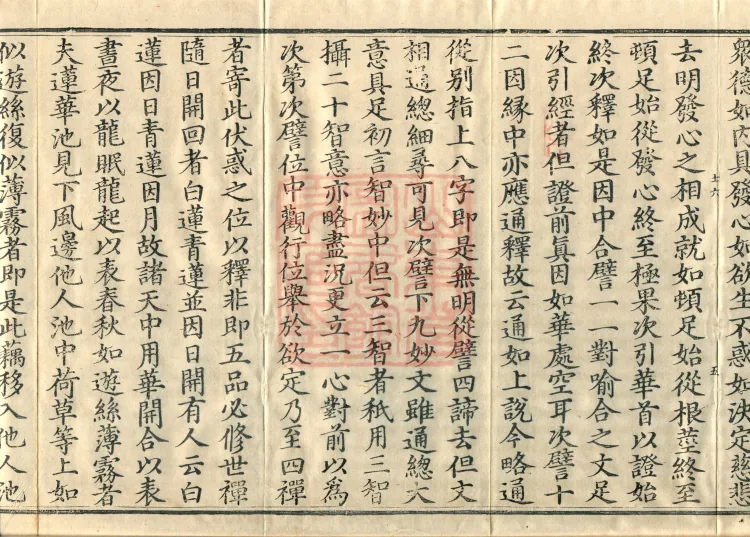 衆德如内具發心如欲生不惑如決定慈悲
去明發心之相成就如頓足始從根莖終至
頓足始從發心終至極果次引華首以證始
終次釋如是因中合譬一一對喻合之文足
次引經者但證前眞因如華處空耳次譬十
二因緣中亦應通釋故云通如上說今略通
從別指上八字即是無明從譬四諦去但文
相遥總細尋可見次譬下九妙文雖通總大
意具足初言智妙中但云三智者秖用三智
攝二十智意亦略盡況更立一心對前以爲
次第次譬位中觀行位舉於欲定乃至四禪
者寄此伏惑之位以釋非即五品必修世禪
隨日開回者白蓮青蓮並因日開有人云白
蓮因日青蓮因月故諸天中用華開合以表
晝夜以龍眠龍起以表春秋如遊絲薄霧者
夫蓮華池見下風邊他人池中荷草等上如
似遊絲復似薄霧者即是此藕移入他人池
十六
五